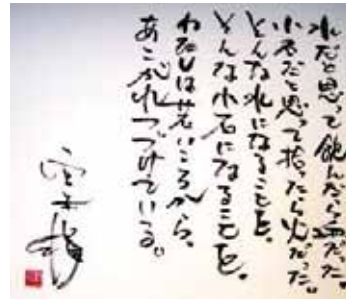 水だと思って飲んだら だった。
小石だと思って拾ったら火だった。
そんな水になることを。
そんな小石になることを。
わたしは若いころから、
あこがれつづけている。